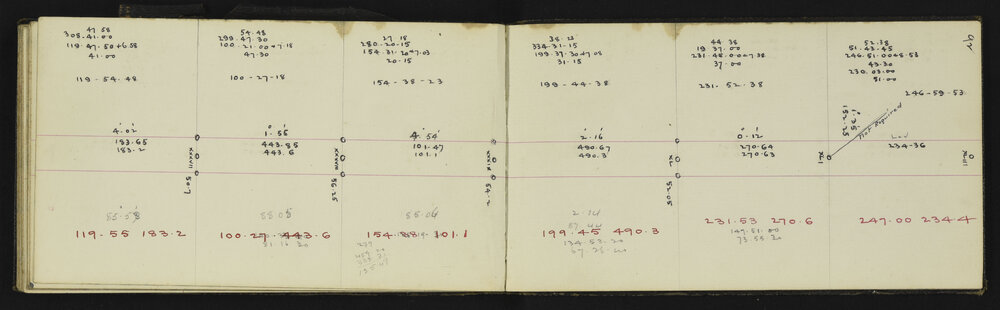 47.58
308.41.00
119.47.50+6.58
41.00
119-54-48
4.02
183.65
183.2
119.55 183.2
54.48
299.47.30
100.21.00+7.18
47.30
100-27-18
1.55
443.85
443.6
XXXVII
50.7
55.05
100.27 443.6
51.16 20
27.18
280-20-15
154.31.20+7.03
20-15
154-38-23
4.54
101.47
101.1
XXXVIII
56.25
55 04
101.1
XXXIX
54.2
38.23
334.31.15
199.37.30+7.08
31.15
199-44-38
2.16
490.67
490.3
2.14
199.45 490.3
134.53.20
XL
52.05
44.38
19.37.00
231.45.00+7.38
37.00
231.52.38
0.12
270.64
270.63
231.53 270.6
147.51.00
XLI
92
52.38
51.43.45
246.51.00+8.53
43.30
230.03.00
51.00
246-59-53
Not Required
234-36
247.00 234.4
XLII